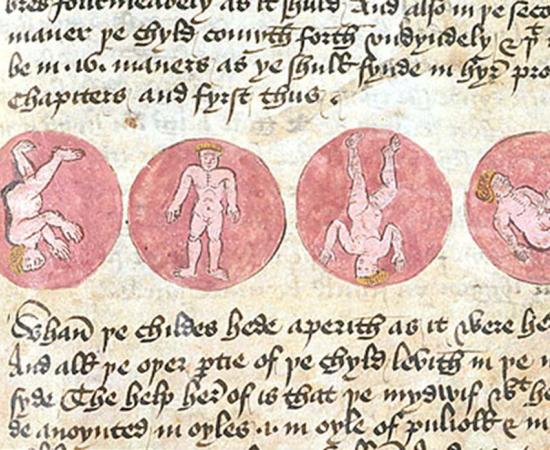 as it shuld And also in þe seco
maner þe chyld comyth forth vndyndely
be in .w. maners as ye shull fynde in hyr pro
Chapiters and fyrst thus
Whan þe childes hede aperith as it were he
And all þe oþer ptie of þe chyld levith in þe
syde The help her of is that þe mydwif wt he
de anoynted in oyles in oyle of puliolt